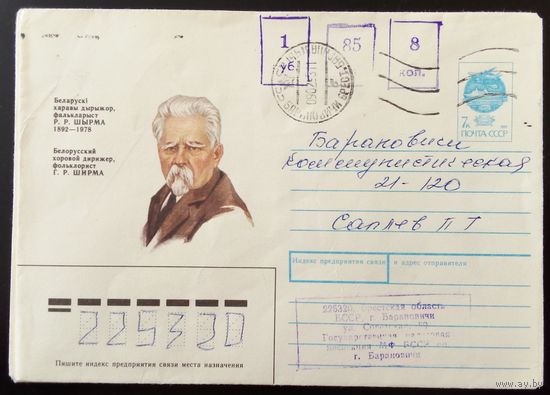 1
уб.
85
8
коп.
7к
ПОЧТА СССР
Беларускі
харавы дырыжор,
фалькларыст
Р. Р. ШЫРМА
1892—1978
Белорусский
хоровой дирижер,
фольклорист
Г. Р. ШИРМА
Барановичи
коммунистическая
21-120
Саплев П Т
Индекс предприятия связи и адрес отправителя
225320, Брестская область
БССР, г. Барановичи
ул.
Государственная
МФ БССР
г. Барановичи
225320
Пишите индекс предприятия связи места назначения
www.ay.by